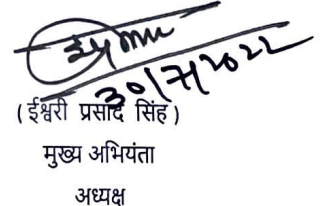 30/7/2022
(ईश्वरी प्रसाद सिंह)
मुख्य अभियंता
अध्यक्ष